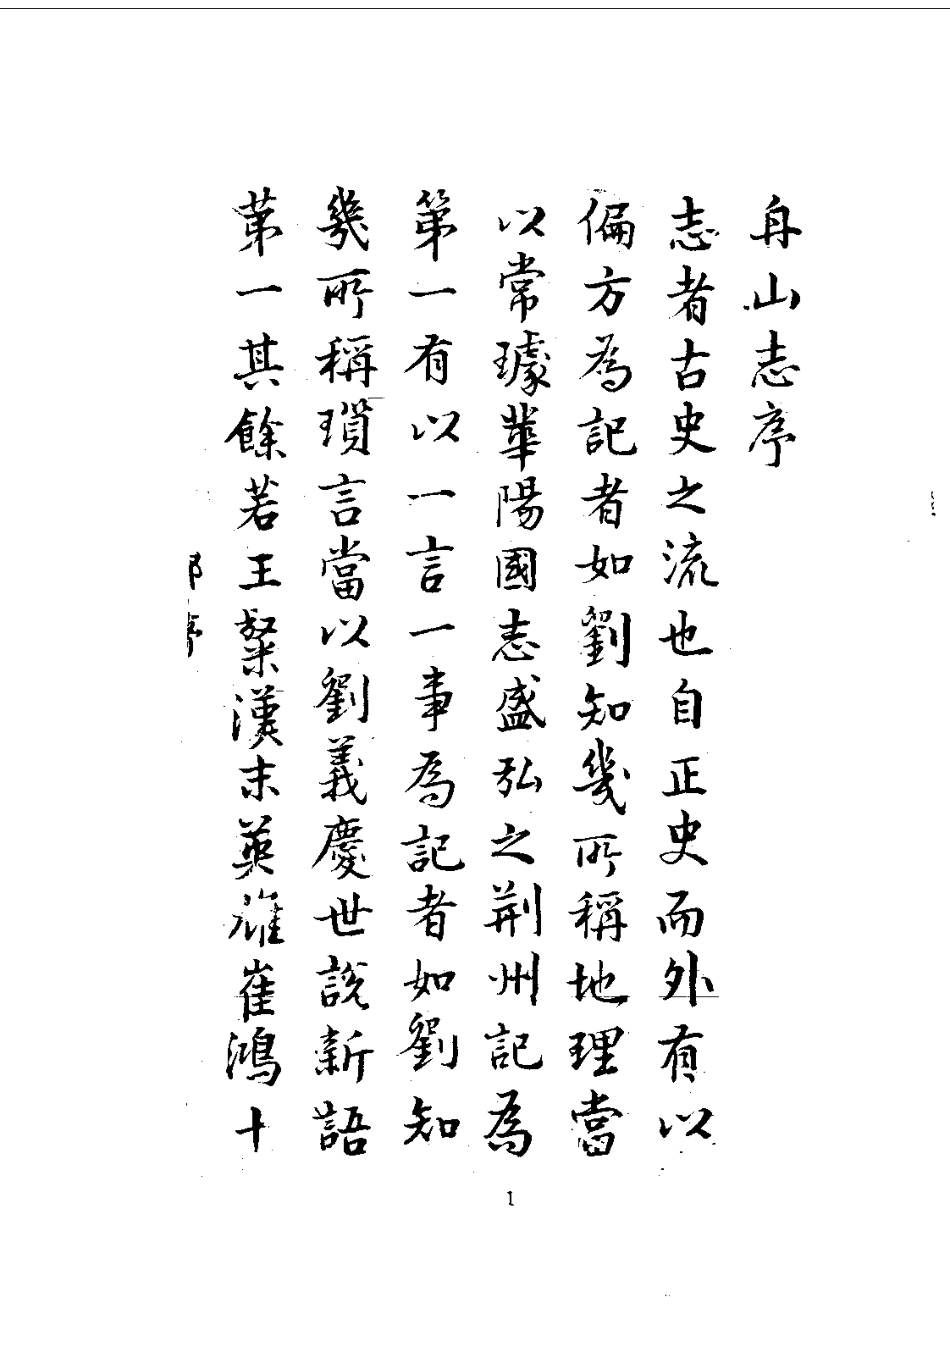 舟山志序
志者古史之流也自正史而外有以
偏方為記者如劉知幾所稱地理當
以常璩華陽國志盛弘之荆州記為
第一有以一言一事為記者如劉知
幾所稱瑣言當以劉義慶世說新語
第一其餘若王粲漢末英雄崔鴻十
1